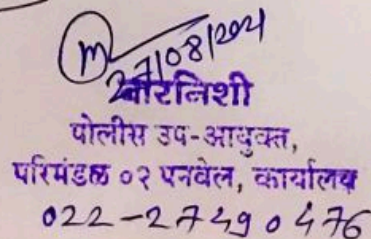 27/08/2021
बारनिशी
पोलीस उप-आयुक्त,
परिमंडळ ०२ पनवेल, कार्यालय
022-27490476